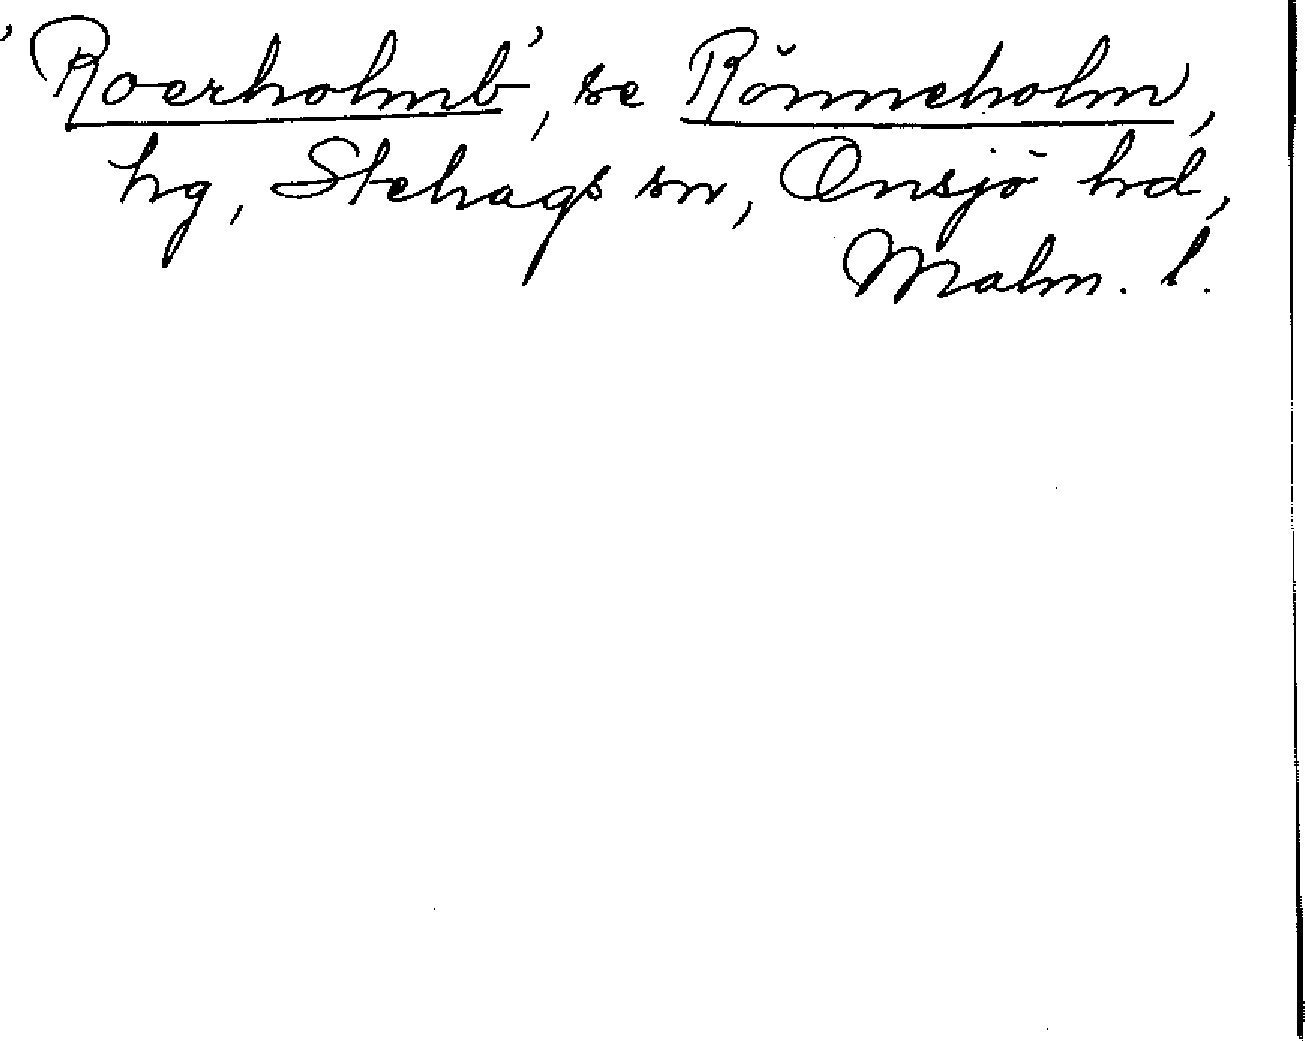 'Roerholmb', se Rönneholm,
hg, Stehags sn, Onsjö hd,
Malm. l.